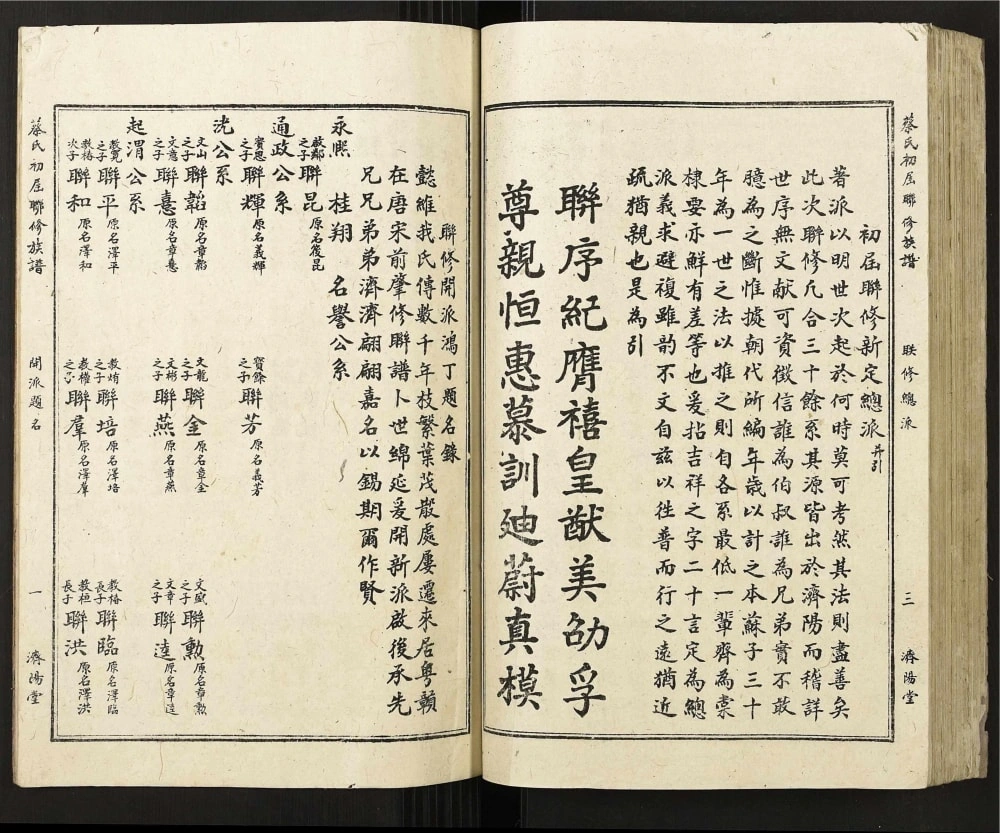 蔡氏初届聯修族譜
联修總派
三
濟陽堂
初屆聯修新定總派并引
著派以明世次起於何時莫可考然其法則盡善矣
此次聯修凢合三十餘系其源皆出於濟陽而稽詳
世序無文献可資徵信誰為伯叔誰為兄弟實不敢
臆為之斷惟據朝代所編年歲以計之本蘇子三十
年為一世之法以推之則自各系最低一輩齊為棠
棣要亦鮮有差等也爰拈吉祥之字二十言定為總
派義求避複雖韵不文自兹以徃普而行之遠猶近
疏猶親也是為引
聯序紀膺禧皇猷美劭孚
尊親恒惠慕訓廸蔚真模
聯修開派鴻丁題名錄
懿維我氏傳數千年枝繁葉茂散處屢遷來居粤贛
在唐宋前肇修聯譜卜世綿延爰開新派啟後承先
兄兄弟弟濟濟翩翩嘉名以錫期爾作賢
永熈 桂翔 名譽公系
教鄰之子聯昆原名筱昆
通政公系
寶恩之子聯輝原名義輝 寶餘之子聯芳原名義芳
洸公系
文山之子聯韜原名章韜 文龍之子聯金原名章金 文盛之子聯勲原名章勲
文意之子聯憙原名章憙 文彬之子聯燕原名章燕 文章之子聯逹原名章逹
起渭公系
教寬之子聯平原名澤平 教煃之子聯培原名澤培 教椿長子聯臨原名澤臨
教椿次子聯和原名澤和 教權之子聯羣原名澤羣 教桓長子聯洪原名澤洪
蔡氏初屆聯修族譜
開派題名
一
濟陽堂